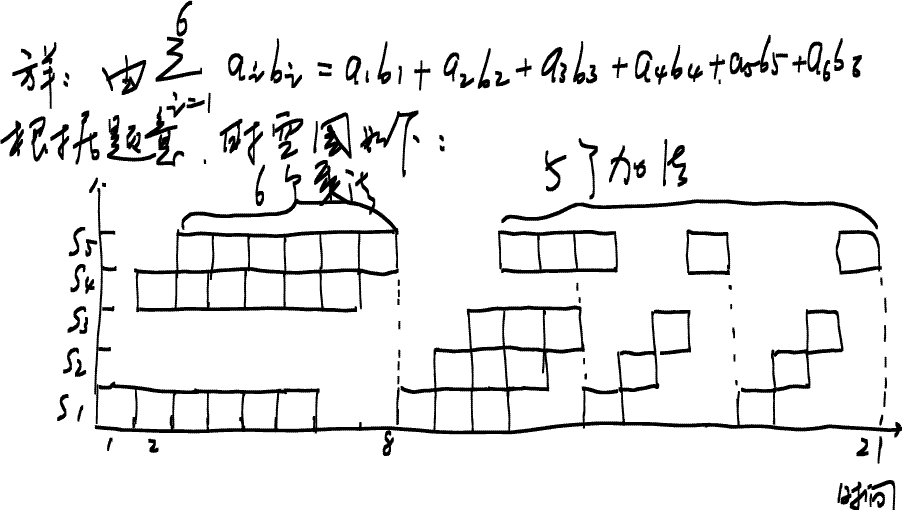 详: 由 6∑i=1 aibi = a1b1 + a2b2 + a3b3 + a4b4 + a5b5 + a6b6
根据题意. 时空图如下:
6个乘法
5个加法
S5
S4
S3
S2
S1
1 2 8 21
时间